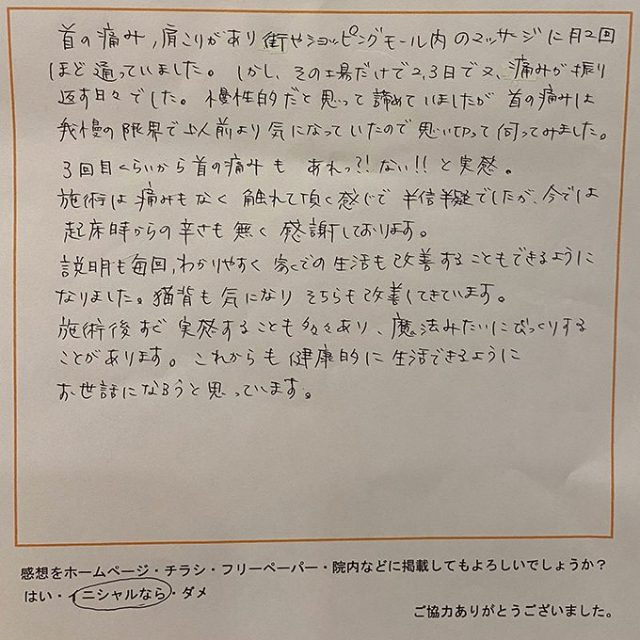 首の痛み,肩こりがあり街やショッピングモール内のマッサージに月2回
ほど通っていました。しかし、その場だけで2,3日で又、痛みが振り
返す日々でした。慢性的だと思って諦めていましたが首の痛みは
我慢の限界で以前より気になっていたので思い切って伺ってみました。
3回目くらいから首の痛みも あれっ?!ない!!と実感。
施術は痛みもなく 触れて頂く感じで 半信半疑でしたが、今では
起床時からの辛さも無く 感謝しております。
説明も毎回,わかりやすく 家での生活も改善することもできるように
なりました。猫背も気になり そちらも改善してきています。
施術後すぐ 実感することも多々あり、魔法みたいにびっくりする
ことがあります。これからも健康的に生活できるように
お世話になろうと思っています。
感想をホームページ・チラシ・フリーペーパー・院内などに掲載してもよろしいでしょうか?
はい・イニシャルなら・ダメ
ご協力ありがとうございました。